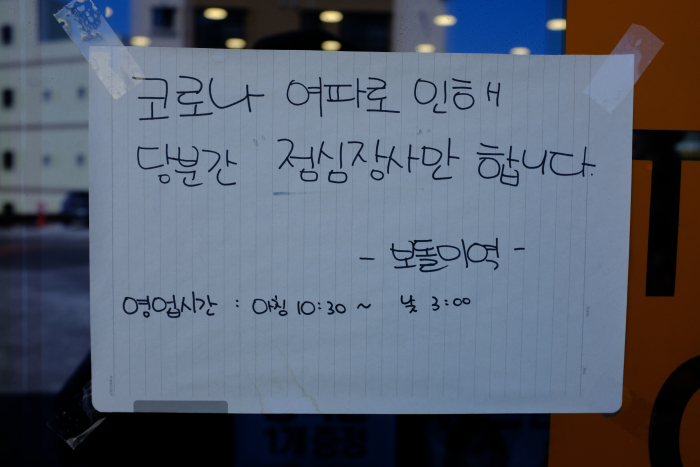 코로나 여파로 인해
당분간 점심장사만 합니다.
- 보돌미역 -
영업시간 : 아침 10:30 ~ 낮 3:00